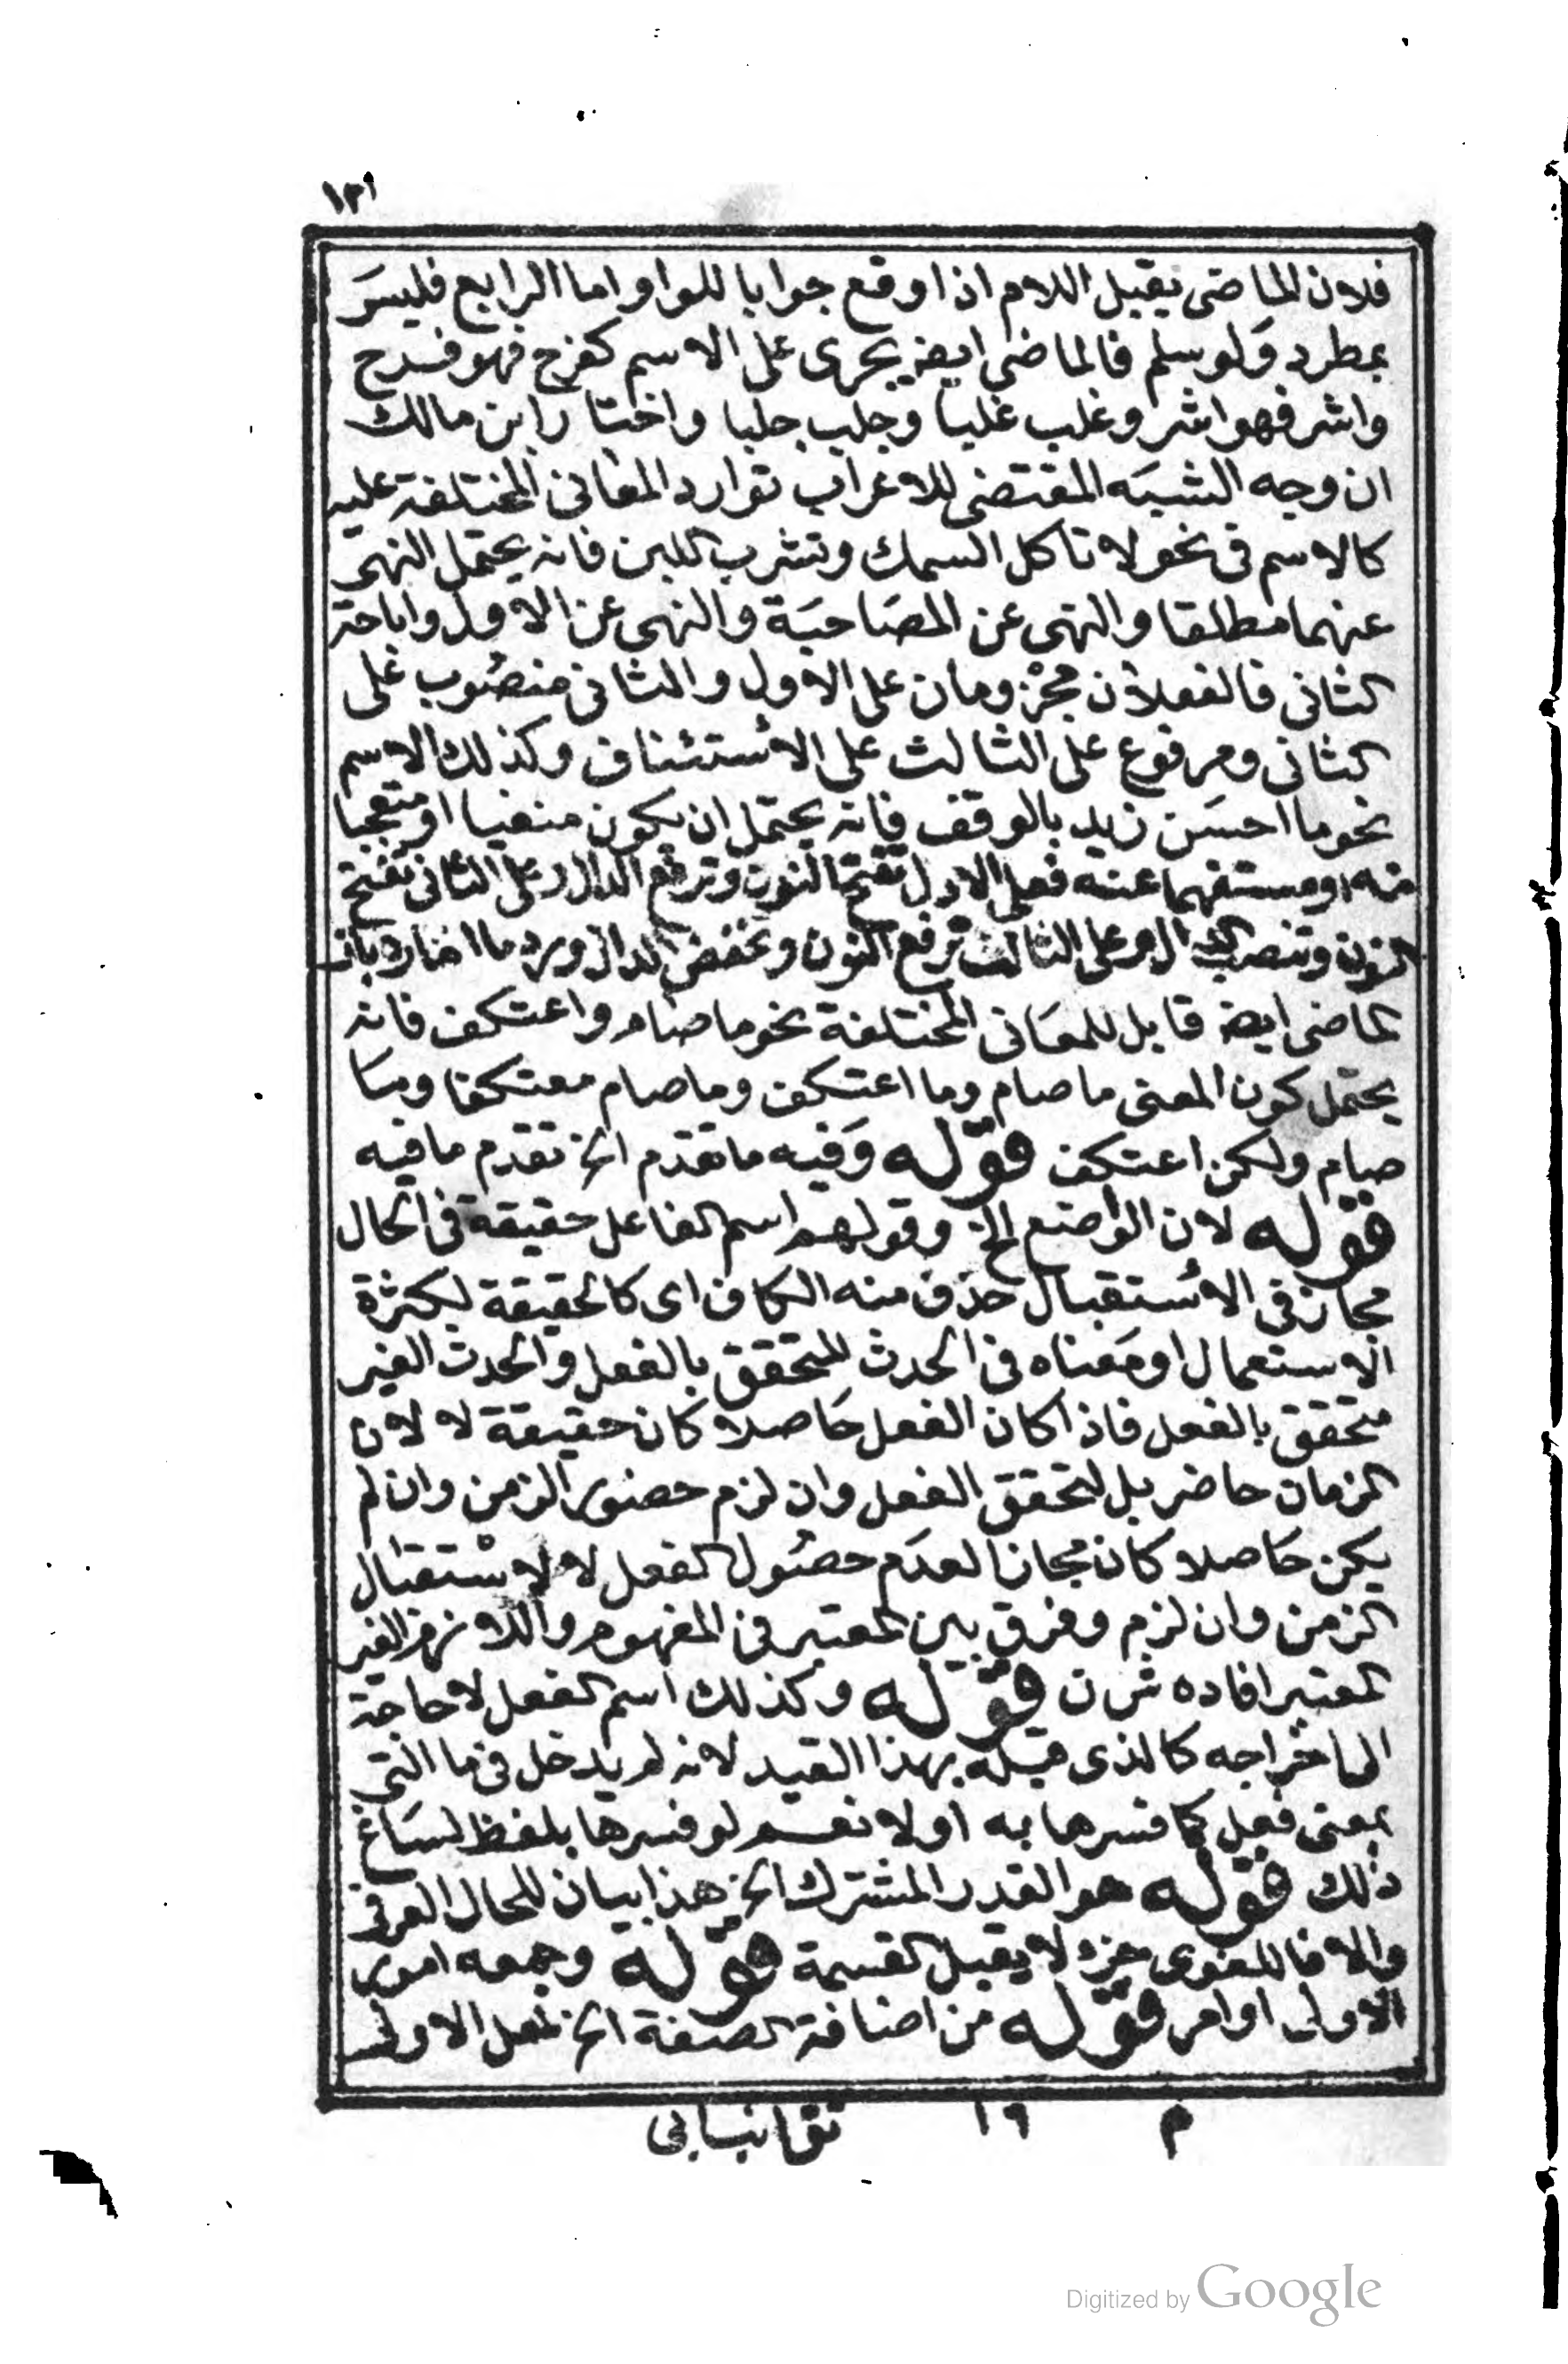 ١٣١
فلان الماضى يقبل اللام اذا وقع جوابا للو او اما الرابع فليسَ
بمطرد وَلو سلم فالماضى ايضا يجرى على الاسم كفرح فهو فـرح
واشر فهو اشر وغلب غلبا وجلب جلبا واختا ر ابن مالك
ان وجه الشبَه المقتضى للاعراب توارد المعانى المختلفة عليه
كالاسم فى نحو لا تاكل السمك وتشرب اللبن فانه يحتمل النهى
عنهما مطلقا والنهى عن المصَاحبَة والنهى عن الاول واباحة
الثانى فالفعلان مجزومان على الاول والثانى منصُوب على
الثانى ومرفوع على الثالث على الاستئناف وكذلك الاسم
نحو ما احسَن زيد بالوقف فانه يحتمل ان يكون منفيا او متعجبا
منه او مستفهما عنه فعلى الاول تفتح النون وترفع الدال وعلى الثانى تفتح
النون وتنصب الدال وعلى الثالث ترفع النون وتخفض الدال ورد ما اختاره بان
الماضى ايضا قابل للمعَانى المختلفة نحو ما صام واعتكف فانه
يحتمل كون المعنى ما صام وما اعتكف وما صام معتكفا ومَا
صام ولكن اعتكف قوله وَفيه ما تقدم الخ تقدم ما فيه
قوله لان الواضع الخ وقولهم اسم الفاعل حقيقة فى الحال
مجاز فى الاستقبال حذف منه الكاف اى كالحقيقة لكثرة
الاستعمال او مَعناه فى الحدث المتحقق بالفعل والحدث الغير
متحقق بالفعل فاذا كان الفعل حَاصلا كان حقيقة لا لان
الزمان حاضر بل لتحقق الفعل وان لزم حضور الزمن وان لم
يكن حَاصلا كان مجازا لعدَم حصُول الفعل لا لاسْتقبال
الزمن وان لزم وفرق بين المعتبر فى المفهوم واللازم الغير
المعتبر افاده ش ن قوله وكذلك اسم الفعل لا حاجة
الى اخراجه كالذى قبله بهذا القيد لانه لم يدخل فى ما التى
بمعنى فعل كما فسرها به اولا نعـم لو فسرها بلفظ لسَاغ
ذلك قوله هو القدر المشترك الخ هذا بيان للحال العرفى
والا فاللغوى جزء لا يقبل القسمة قوله وجمعه امور
الاولى اوامر قوله من اضافة الصفة الخ لعل الاولى
م ١٩
Digitized by Google